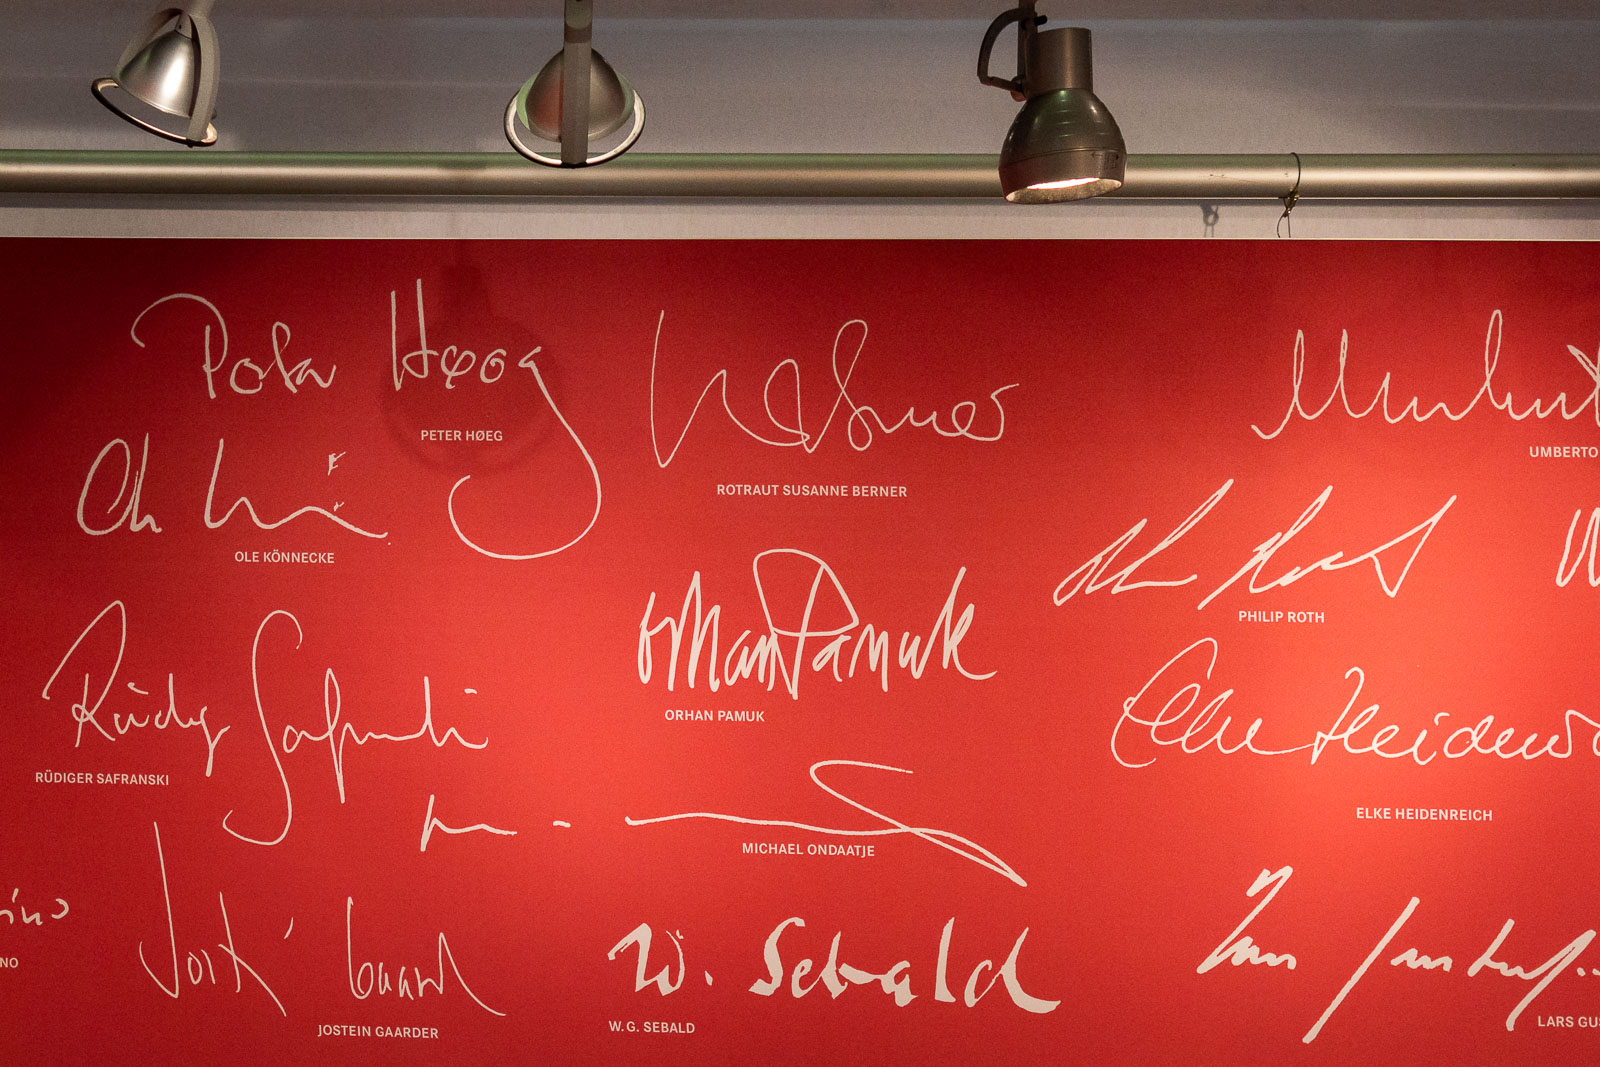 Peter Høeg
PETER HØEG
Berner
ROTRAUT SUSANNE BERNER
Umbert
UMBERTO
OLE KÖNNECKE
PHILIP ROTH
Orhan Pamuk
ORHAN PAMUK
Rüdiger Safranski
RÜDIGER SAFRANSKI
Elke Heidenre
ELKE HEIDENREICH
MICHAEL ONDAATJE
ino
NO
Jostein Gaarder
JOSTEIN GAARDER
W. Sebald
W. G. SEBALD
Lars Gustafs
LARS GUS